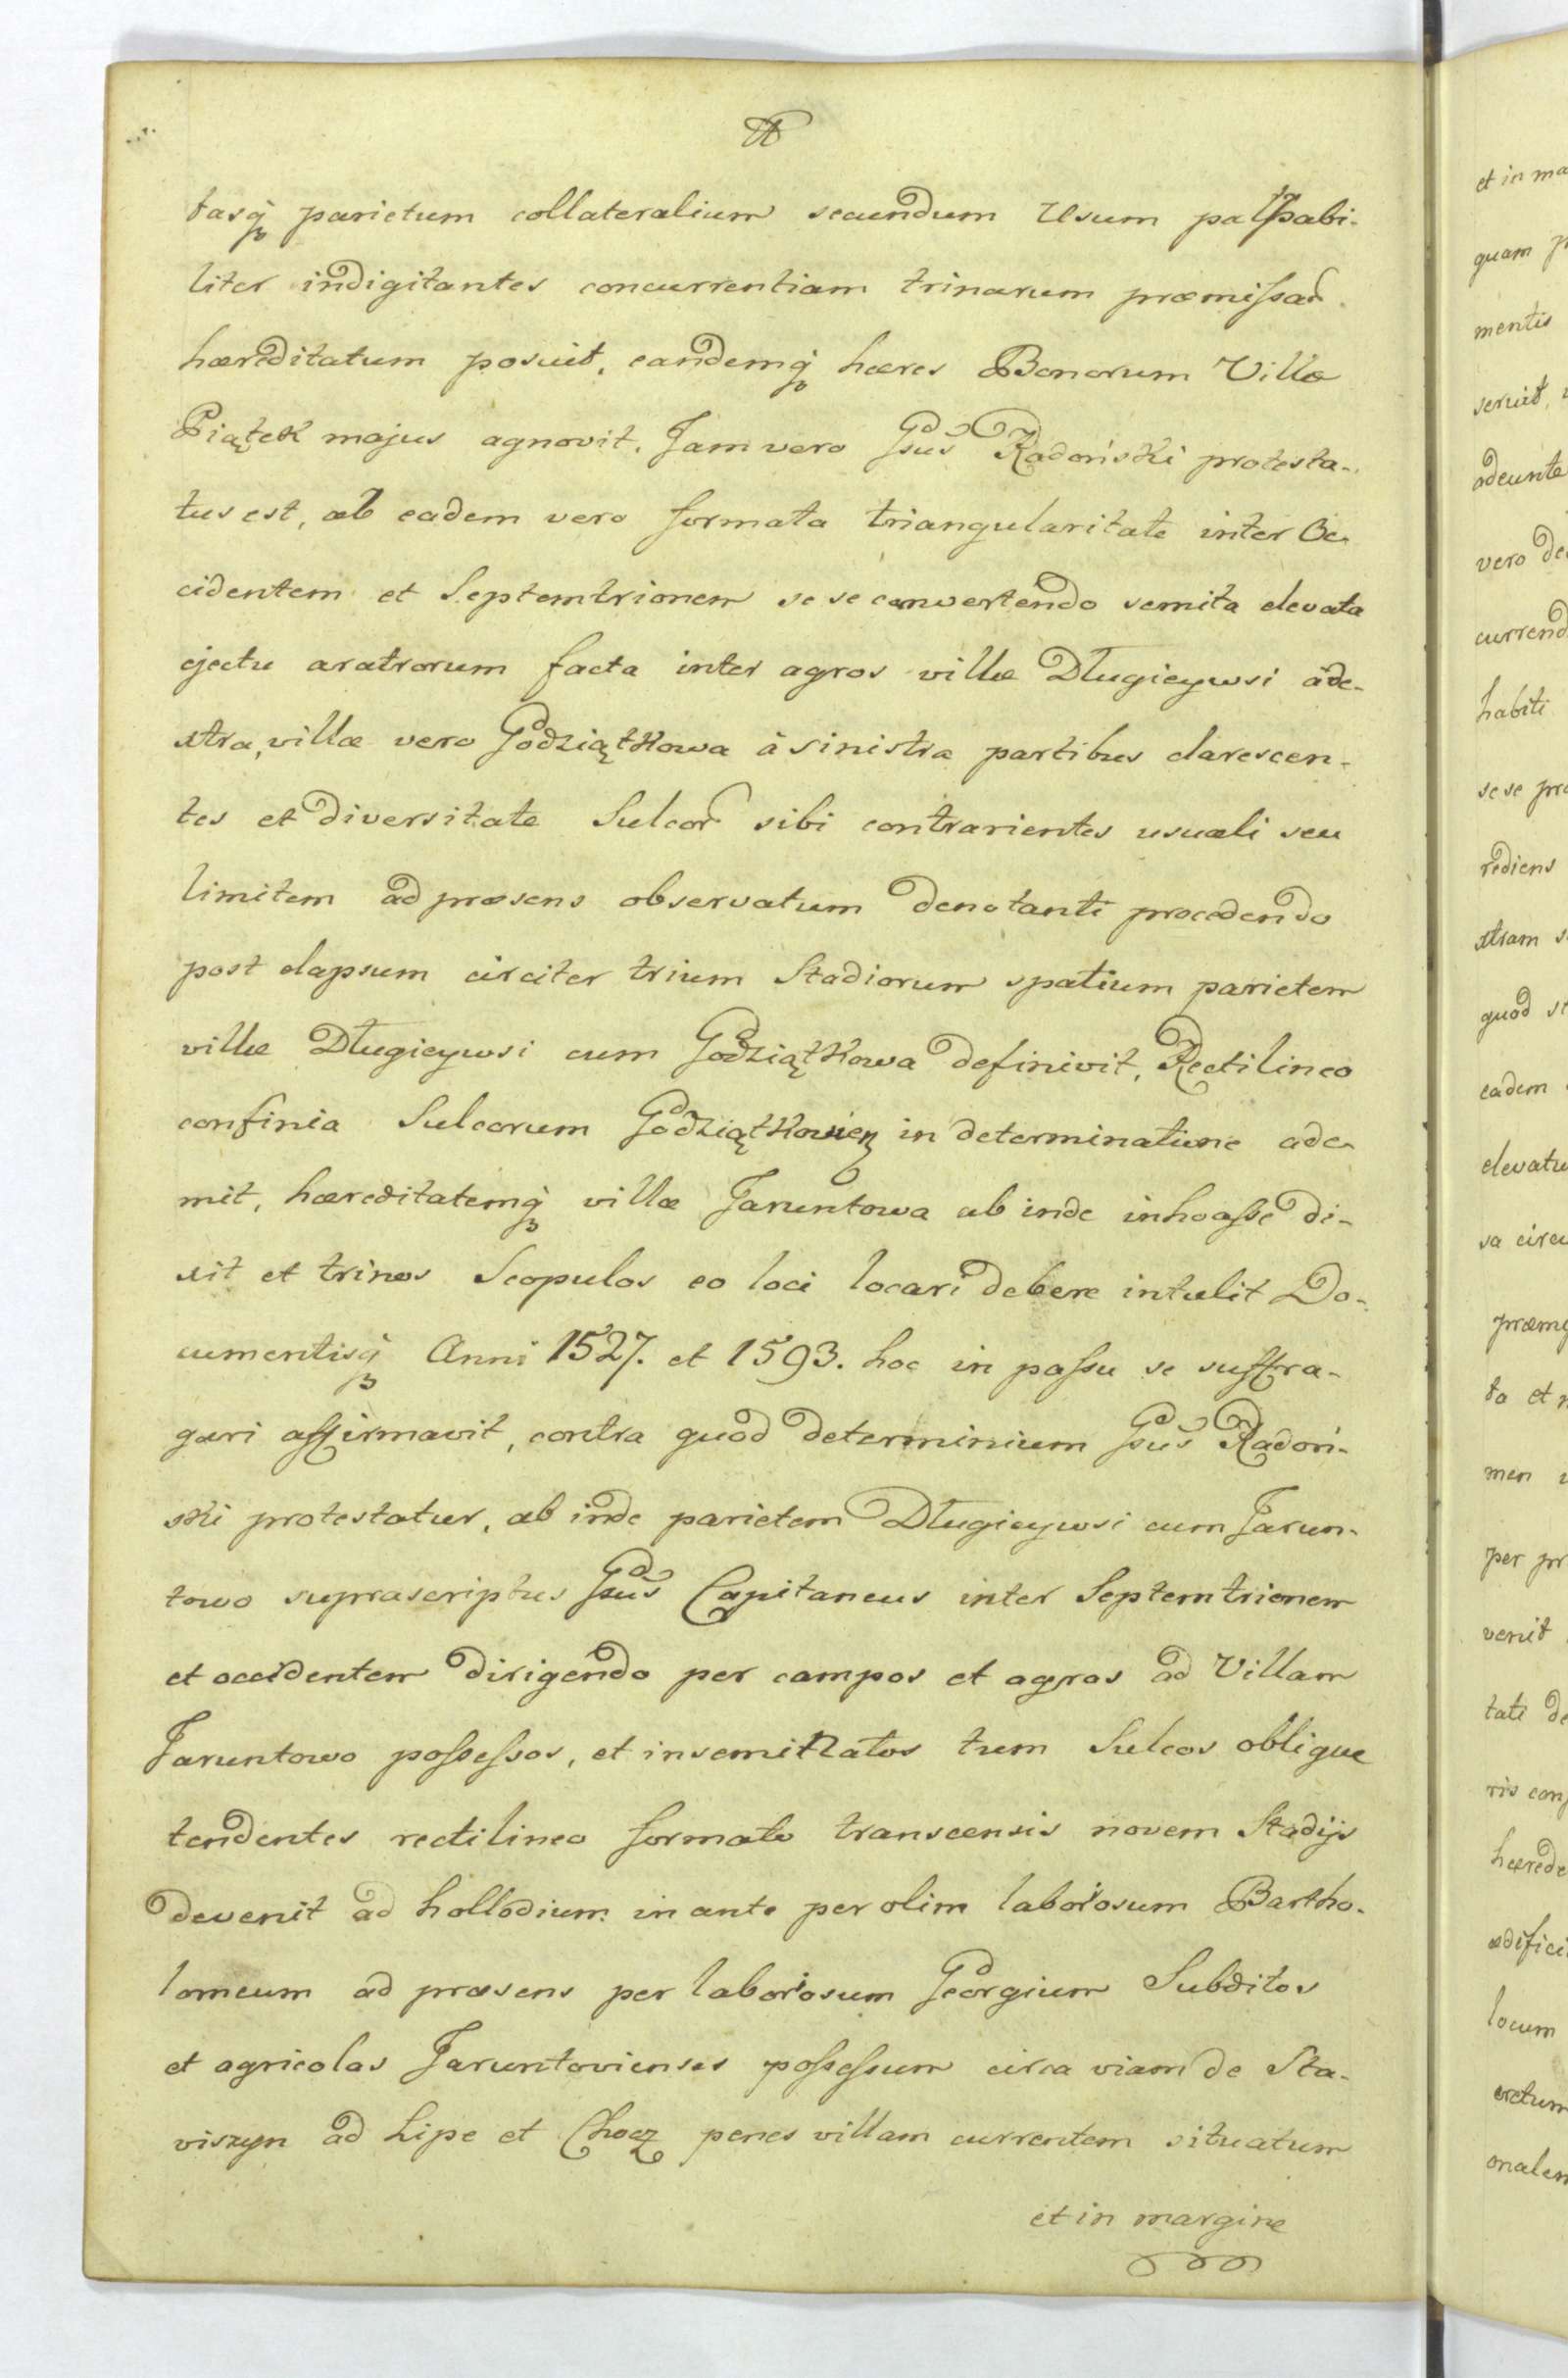 tasq́ parietum collateralium secundum Usum palpabi-
liter indigitantes concurrentiam trinarum præmissar
hæreditatum posuit, eandemq́ hæres Bonorum Villæ
Piątek majus agnovit. Jam vero Gsus Radoński protesta-
tus est, ab eadem vero formata triangularitate inter Oc-
cidentem et Septemtrionem se se convertendo semita elevata
ejectu aratrorum facta inter agros villæ Długieywsi áde-
xtra, villæ vero Godziątkowa à sinistra partibus clarescen-
tes et diversitate Sulcor sibi contrarientes usuali seu
limitem ad præsens observatum denotanti procedendo
post elapsum circiter trium Stadiorum spatium parietem
villæ Długieywsi cum Godziątkowa definivit, Rectilineo
confinia Sulcorum Godziątkowien in determinatione ade-
mit, hæreditatemq́ villæ Jaruntowa ab inde inhoasse di-
xit et trinos Scopulos eo loci locari debere intulit Do-
cumentisq́ Anni 1527. et 1593. hoc in passu se suffra-
gari affirmavit, contra quod determinium Gsus Radoń-
ski protestatur, ab inde parietem Długieywsi cum Jarun-
towo suprascriptus Gsus Capitaneus inter Septemtrionem
et occidentem dirigendo per campos et agros ad Villam
Jaruntowo possessos, et inseminatos tum Sulcos oblique
tendentes rectilineo formato transcensis novem Stadijs
devenit ad hollodium in ante per olim laboriosum Bartho-
lomeum ad præsens per laboriosum Georgium Subditos
et agricolas Jaruntovienses possessum circa viam de Sta-
viszyn ad Lipe et Chocz penes villam currentem situatum
et in margine
et in ma
quam p
mentis
seruit,
adeunte
vero de
currend
habiti
se se pro
rediens
xtram s
quod st
eadem
elevatu
sa circu
præmi
ta et n
men
per pr
venit
tati de
ris conf
hærede
ædifici
locum
eretum
onalem